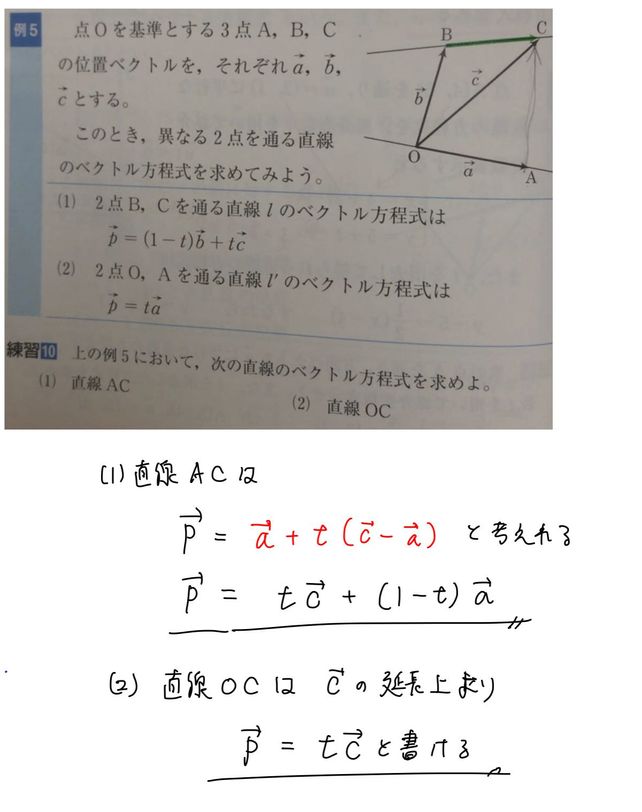 例5 点Oを基準とする3点A，B，C
の位置ベクトルを，それぞれ$\vec{a}$，$\vec{b}$，
$\vec{c}$とする。
このとき，異なる2点を通る直線
のベクトル方程式を求めてみよう。
B
C
$\vec{b}$
$\vec{c}$
O
$\vec{a}$
A
(1) 2点B，Cを通る直線lのベクトル方程式は
$\vec{p}=(1-t)\vec{b}+t\vec{c}$
(2) 2点O，Aを通る直線l'のベクトル方程式は
$\vec{p}=t\vec{a}$
練習10 上の例5において，次の直線のベクトル方程式を求めよ。
(1) 直線AC
(2) 直線OC
(1)直線ACは
$\vec{p}=\vec{a}+t(\vec{c}-\vec{a})$ と考えれる
$\vec{p}=t\vec{c}+(1-t)\vec{a}$
(2) 直線OCは $\vec{c}$の延長上より
$\vec{p}=t\vec{c}$と書ける